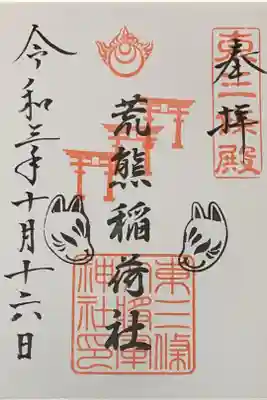 奉拝
東三條殿
荒熊稲荷社
東三條
殯軍
神社印
令和三年十月十六日